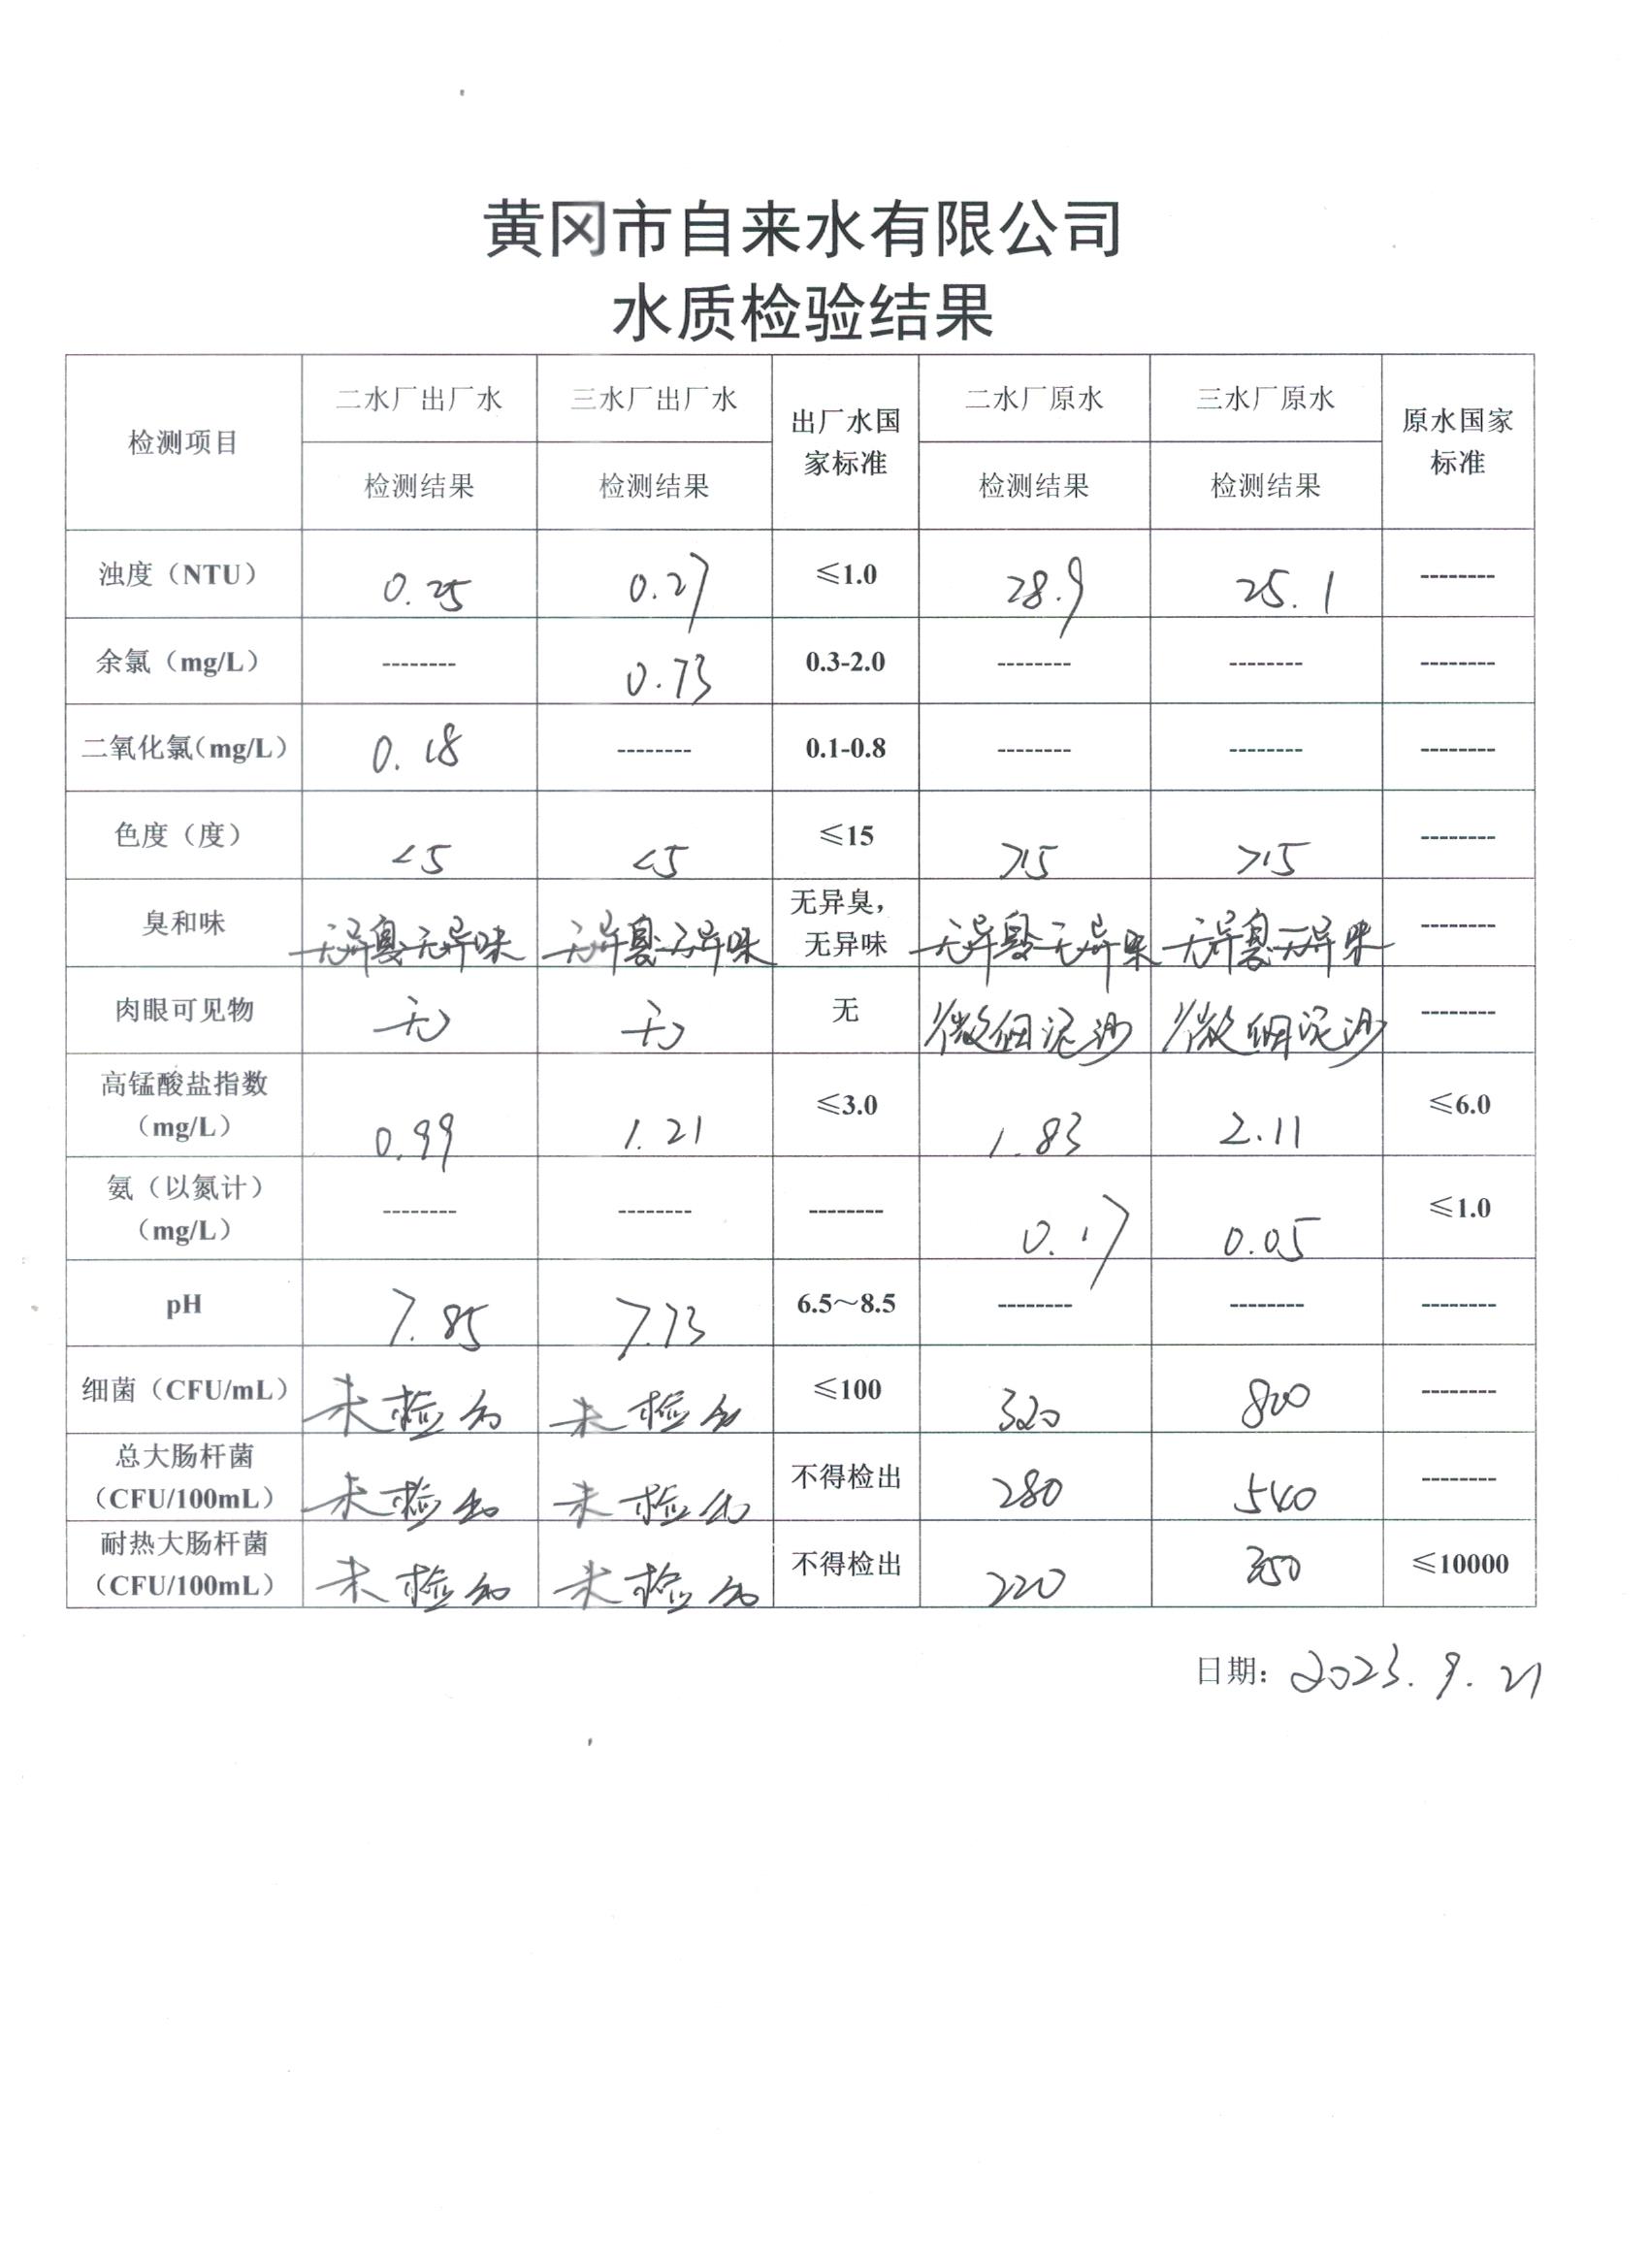 黄冈市自来水有限公司
水质检验结果
检测项目 二水厂出厂水 三水厂出厂水 出厂水国家标准 二水厂原水 三水厂原水 原水国家标准
检测结果 检测结果 检测结果 检测结果
浊度（NTU） 0.25 0.27 ≤1.0 28.9 25.1 --------
余氯（mg/L） -------- 0.73 0.3-2.0 -------- -------- --------
二氧化氯（mg/L） 0.18 -------- 0.1-0.8 -------- -------- --------
色度（度） <5 <5 ≤15 >15 >15 --------
臭和味 无异臭无异味 无异臭无异味 无异臭，无异味 无异臭无异味 无异臭无异味 --------
肉眼可见物 无 无 无 微细泥沙 微细泥沙 --------
高锰酸盐指数（mg/L） 0.99 1.21 ≤3.0 1.83 2.11 ≤6.0
氨（以氮计）（mg/L） -------- -------- -------- 0.17 0.05 ≤1.0
pH 7.85 7.73 6.5～8.5 -------- -------- --------
细菌（CFU/mL） 未检出 未检出 ≤100 320 800 --------
总大肠杆菌（CFU/100mL） 未检出 未检出 不得检出 280 540 --------
耐热大肠杆菌（CFU/100mL） 未检出 未检出 不得检出 220 350 ≤10000
日期：2023.9.21